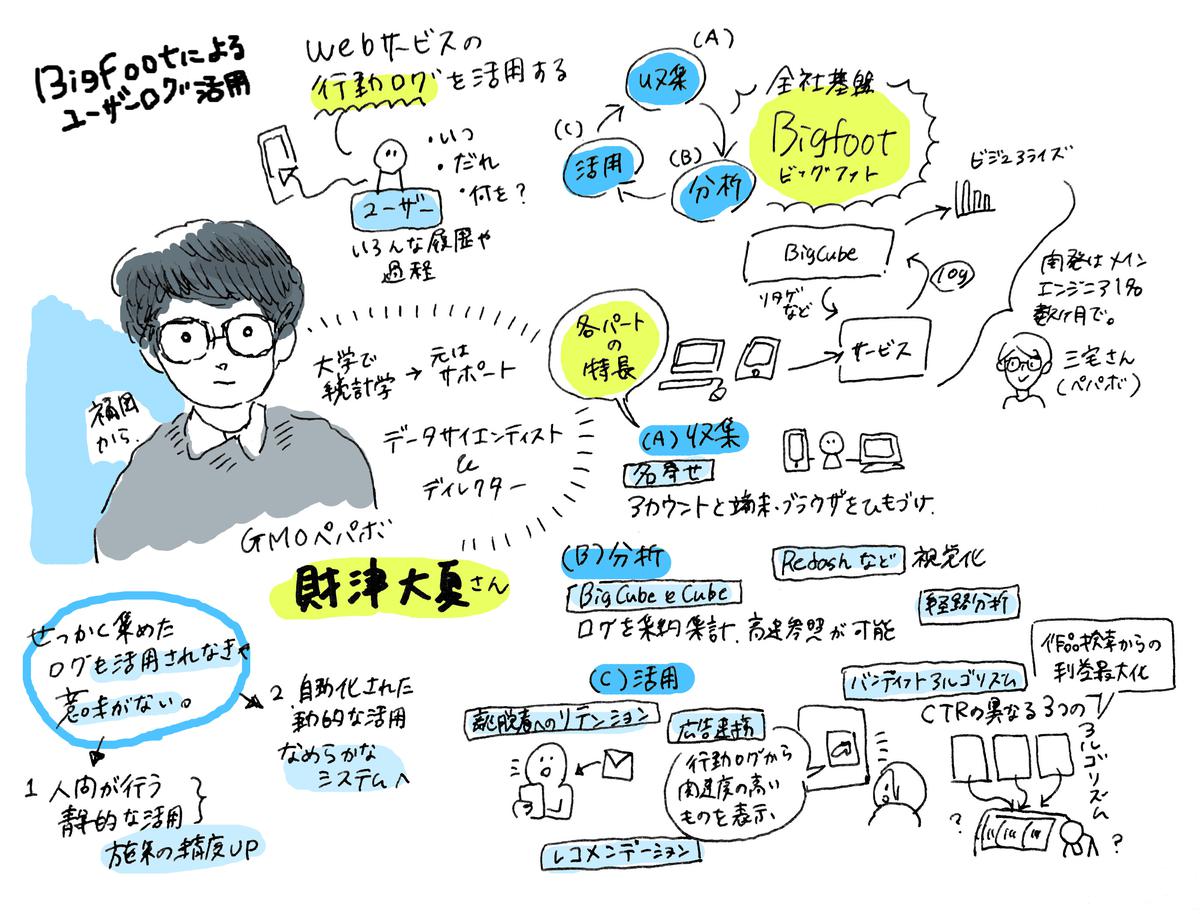 Bigfootによる
ユーザーログ活用
Webサービスの
行動ログを活用する
・いつ
・だれ
・何を?
ユーザー
いろんな履歴や
過程
(A)
収集
(B)
分析
(C)
活用
全社基盤
Bigfoot
ビッグフット
ビジュアライズ
BigCube
log
リタゲ
など
サービス
開発はメイン
エンジニア1名
数ヶ月で。
三宅さん
(ペパボ)
福岡
から.
大学で
統計学
→
元は
サポート
データサイエンティスト
&
ディレクター
GMOペパボ
財津大夏さん
各パート
の
特長
(A)収集
名寄せ
アカウントと端末・ブラウザをひもづけ.
(B)分析
BigCubeとCube
ログを集約集計.高速参照が可能
Redashなど
視覚化
経路分析
(C)活用
離脱者へのリテンション
広告連携
行動ログから
関連度の高い
ものを表示.
レコメンデーション
バンディットアルゴリズム
作品検索からの
利益最大化
CTRの異なる3つの
アルゴリズム
?
?
せっかく集めた
ログも活用されなきゃ
意味がない。
1 人間が行う
静的な活用
施策の精度UP
2.自動化された
動的な活用
なめらかな
システムへ